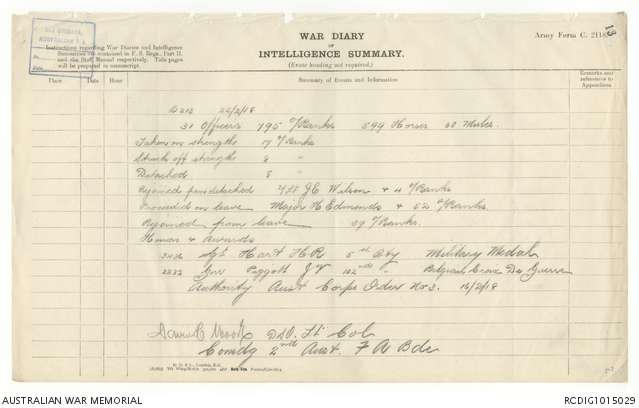 WAR DIARY
OF
INTELLIGENCE SUMMARY.
(Erase heading not required.)
Army Form C. 2118.
Instructions regarding War Diaries and Intelligence
Summaries are contained in F. S. Regs., Part II.
and the Staff Manual respectively. Title pages
will be prepared in manuscript.
Place Date Hour Summary of Events and Information Remarks and references to Appendices
22/2/18
31 Officers 795 O/Ranks 599 Horses 60 Mules.
Taken on strengths 17 O/Ranks
Struck off strengths 8 "
Detached 8 "
Rejoined from detached 2/Lt J E Wilson & 4 O/Ranks
Proceeded on leave Major H Edmonds & 52 O/Ranks.
Rejoined from leave 39 O/Ranks.
Honors & Awards
Sgt Hart H R 5th Bty Military Medal
Gnr Paggott J V 102nd " Belgian Croix De Guerre
Authority Aust Corps Order No 3. 16/2/18
DSO. Lt Col
Comdg 2nd Aust. F A Bde
AUSTRALIAN WAR MEMORIAL
RCDIG1015029